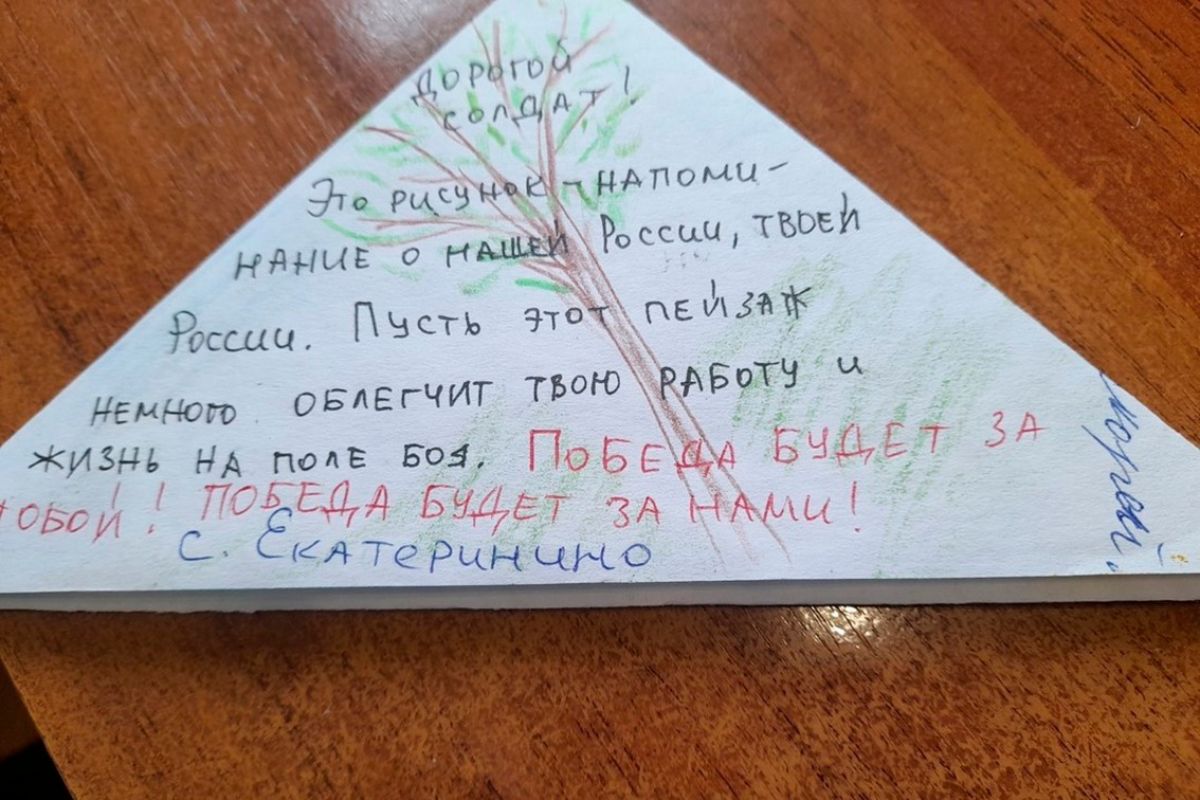 ДОРОГОЙ
СОЛДАТ!
Это рисунок - НАПОМИ-
НАНИЕ О НАШЕЙ России, ТВОЕЙ
России. Пусть этот пейзаж
немного ОБЛЕГЧИТ ТВОЮ РАБОТУ и
жизнь на поле боя. Победа БУДЕТ ЗА
ТОБОЙ! ПОБЕДА БУДЕТ ЗА НАМИ!
с. Екатеринино